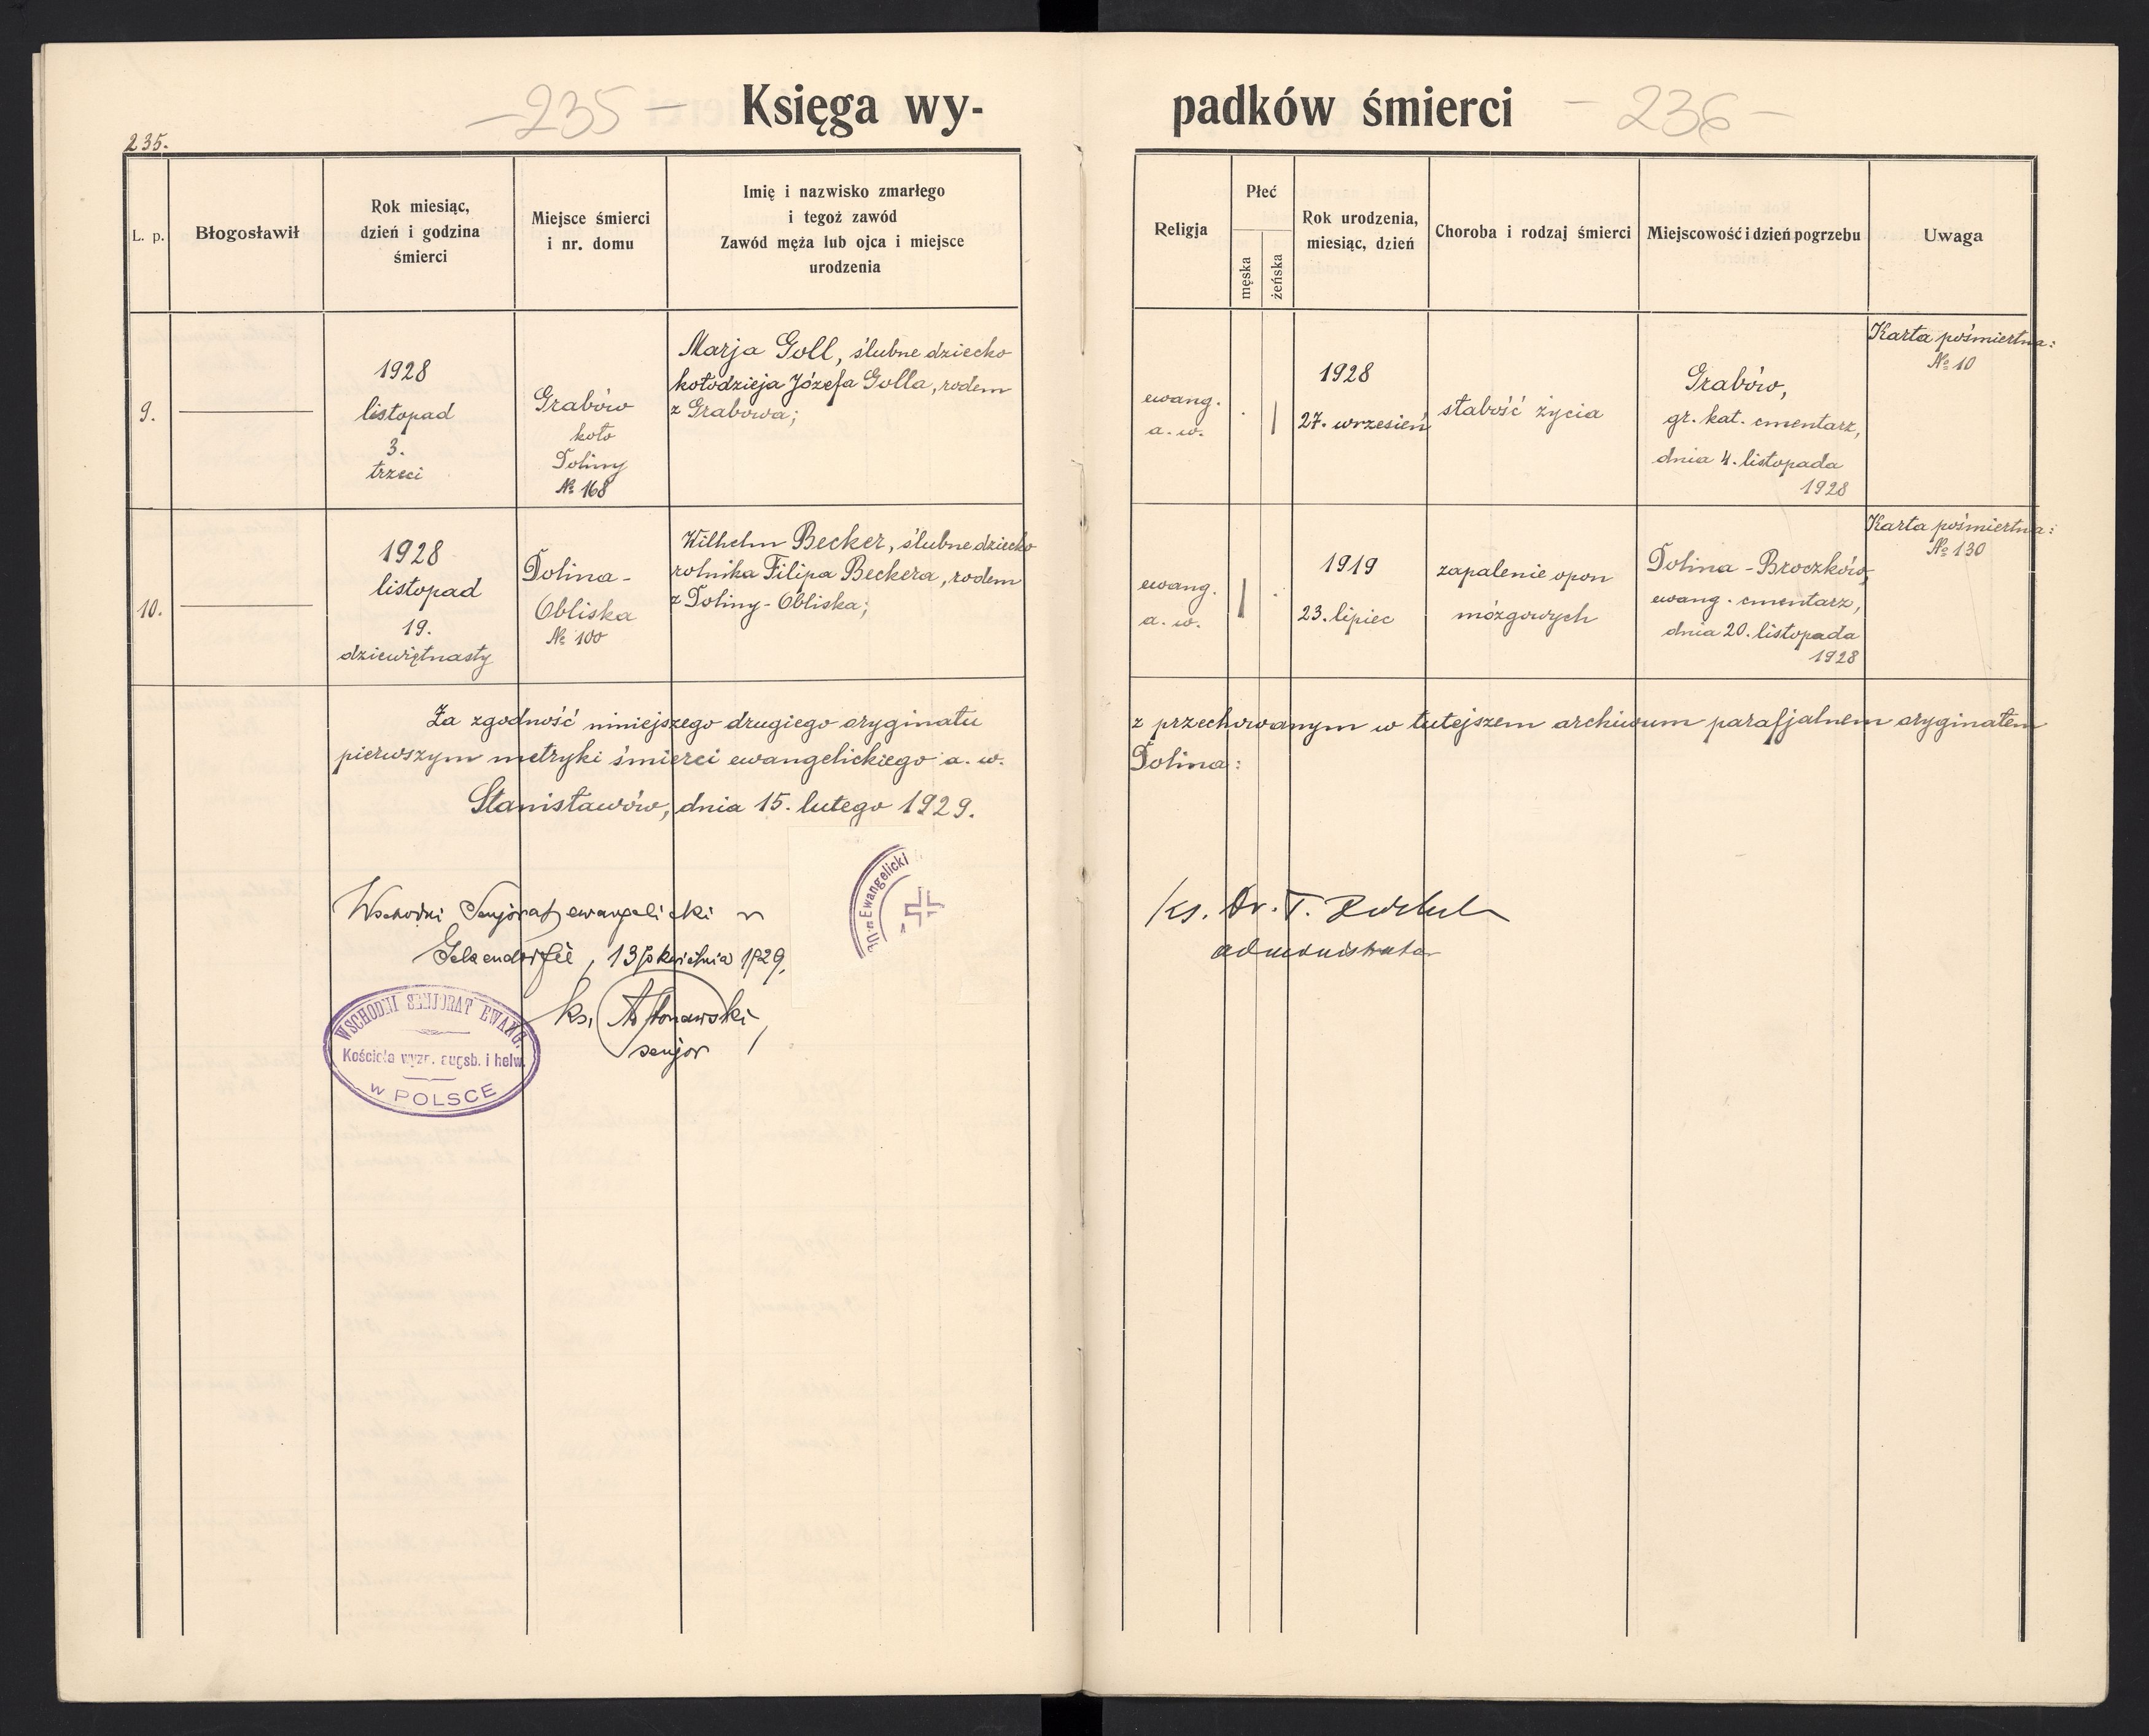 -235-
Księga wy-
padków śmierci
-236-
235.
L. p.
Błogosławił
Rok miesiąc,
dzień i godzina
śmierci
Miejsce śmierci
i nr. domu
Imię i nazwisko zmarłego
i tegoż zawód
Zawód męża lub ojca i miejsce
urodzenia
Religja
Płeć
męska
żeńska
Rok urodzenia,
miesiąc, dzień
Choroba i rodzaj śmierci
Miejscowość i dzień pogrzebu
Uwaga
9.
1928
listopad
3.
trzeci
Grabów
koło
Doliny
№ 168
Marja Goll, ślubne dziecko
kołodzieja Józefa Golla, rodem
z Grabowa;
ewang.
a. w.
1928
27. wrzesień
słabość życia
Grabów,
gr. kat. cmentarz,
dnia 4. listopada
1928
Karta pośmiertna:
№ 10
10.
1928
listopad
19.
dziewiętnasty
Dolina-
Obliska
№ 100
Wilhelm Becker, ślubne dziecko
rolnika Filipa Beckera, rodem
z Doliny-Obliska;
ewang.
a. w.
1919
23. lipiec
zapalenie opon
mózgowych
Dolina-Broczków,
ewang. cmentarz,
dnia 20. listopada
1928
Karta pośmiertna:
№ 130
Za zgodność niniejszego drugiego oryginału
z przechowanym w tutejszem archiwum parafjalnem oryginałem
pierwszym metryki śmierci ewangelickiego a. w.
Dolina:
Stanisławów, dnia 15. lutego 1929.
Ewangelicki
Wschodni Senjorat ewangelicki w
Gelsendorfie, 13 kwietnia 1929,
ks.
senjor
WSCHODNI SENJORAT EWANG.
Kościoła wyzn. augsb. i helw.
w POLSCE
Ks. Dr. T.
administrator